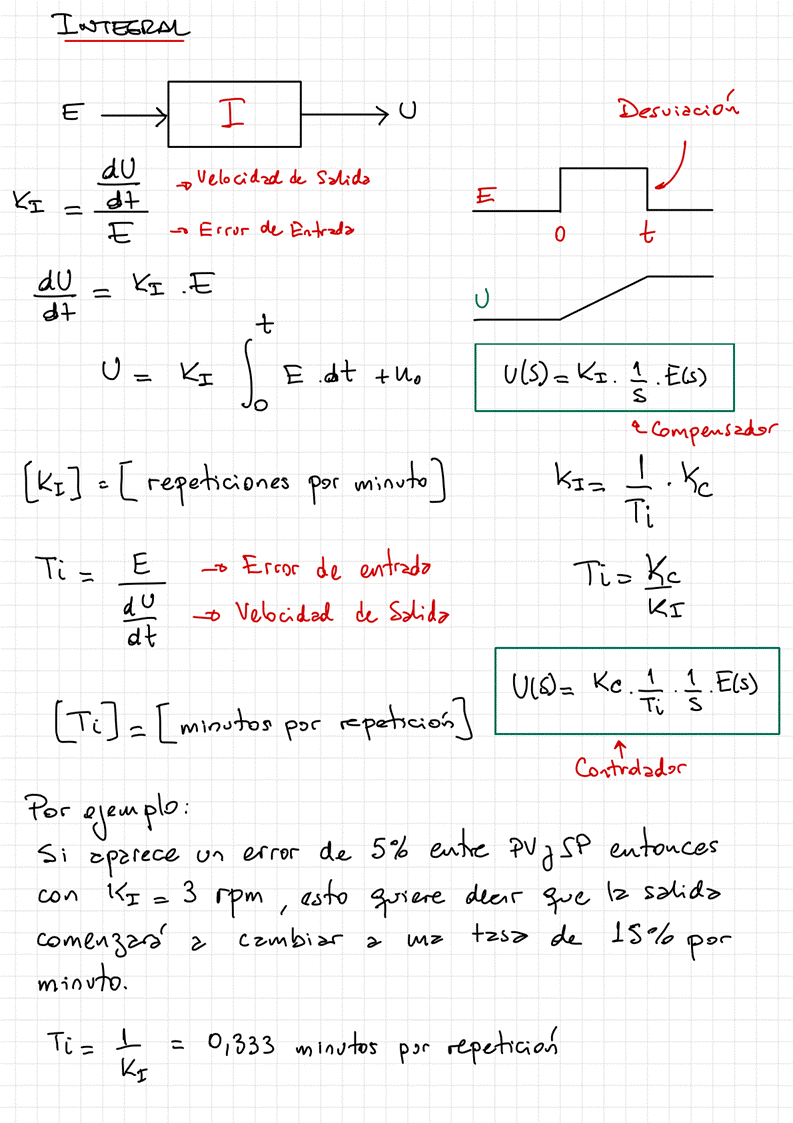 INTEGRAL
E → I → U
Desviación
K_I = (dU/dt) / E
→ Velocidad de Salida
→ Error de Entrada
E
0 t
dU/dt = K_I . E
U
U = K_I ∫₀ᵗ E . dt + u₀
U(s) = K_I . 1/s . E(s)
Compensador
[K_I] = [repeticiones por minuto]
K_I = 1/Ti . Kc
Ti = E / (dU/dt)
→ Error de entrada
→ Velocidad de Salida
Ti = Kc / K_I
U(s) = Kc . 1/Ti . 1/s . E(s)
Controlador
[Ti] = [minutos por repetición]
Por ejemplo:
Si aparece un error de 5% entre PV y SP entonces
con K_I = 3 rpm, esto quiere decir que la salida
comenzará a cambiar a una tasa de 15% por
minuto.
Ti = 1/K_I = 0,333 minutos por repetición